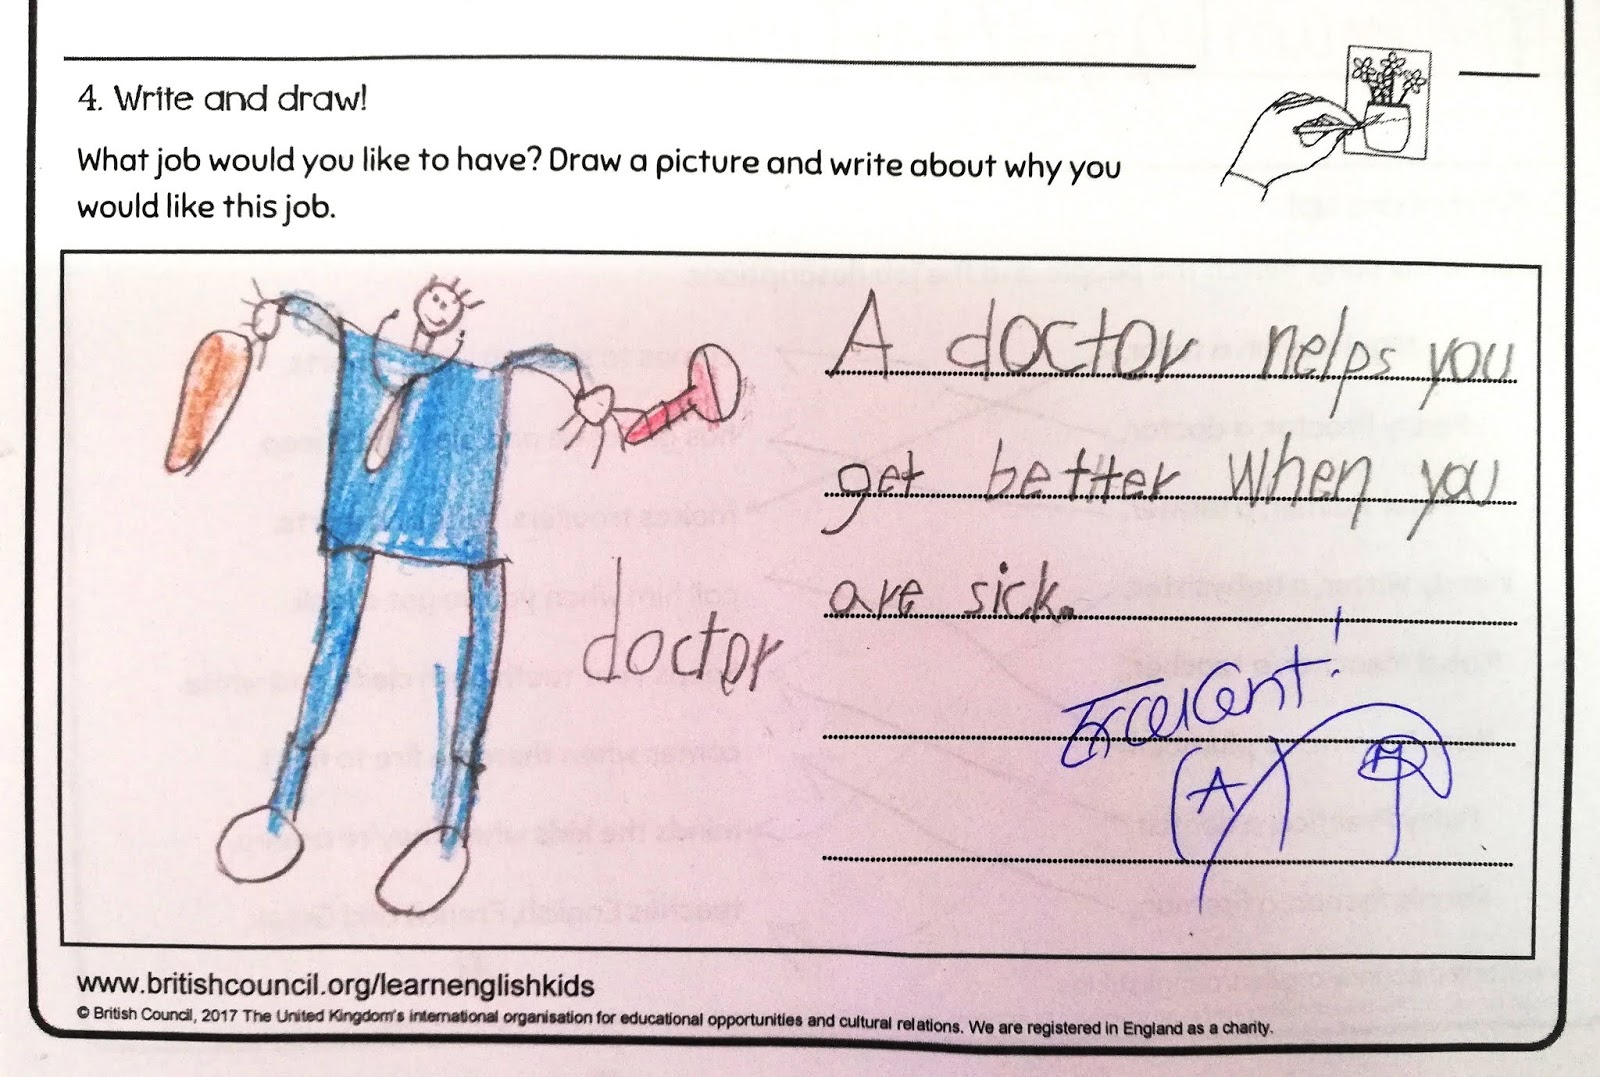 4. Write and draw!
What job would you like to have? Draw a picture and write about why you
would like this job.
A doctor helps you
get better when you
are sick.
doctor
Excellent!
A
www.britishcouncil.org/learnenglishkids
© British Council, 2017 The United Kingdom's international organisation for educational opportunities and cultural relations. We are registered in England as a charity.